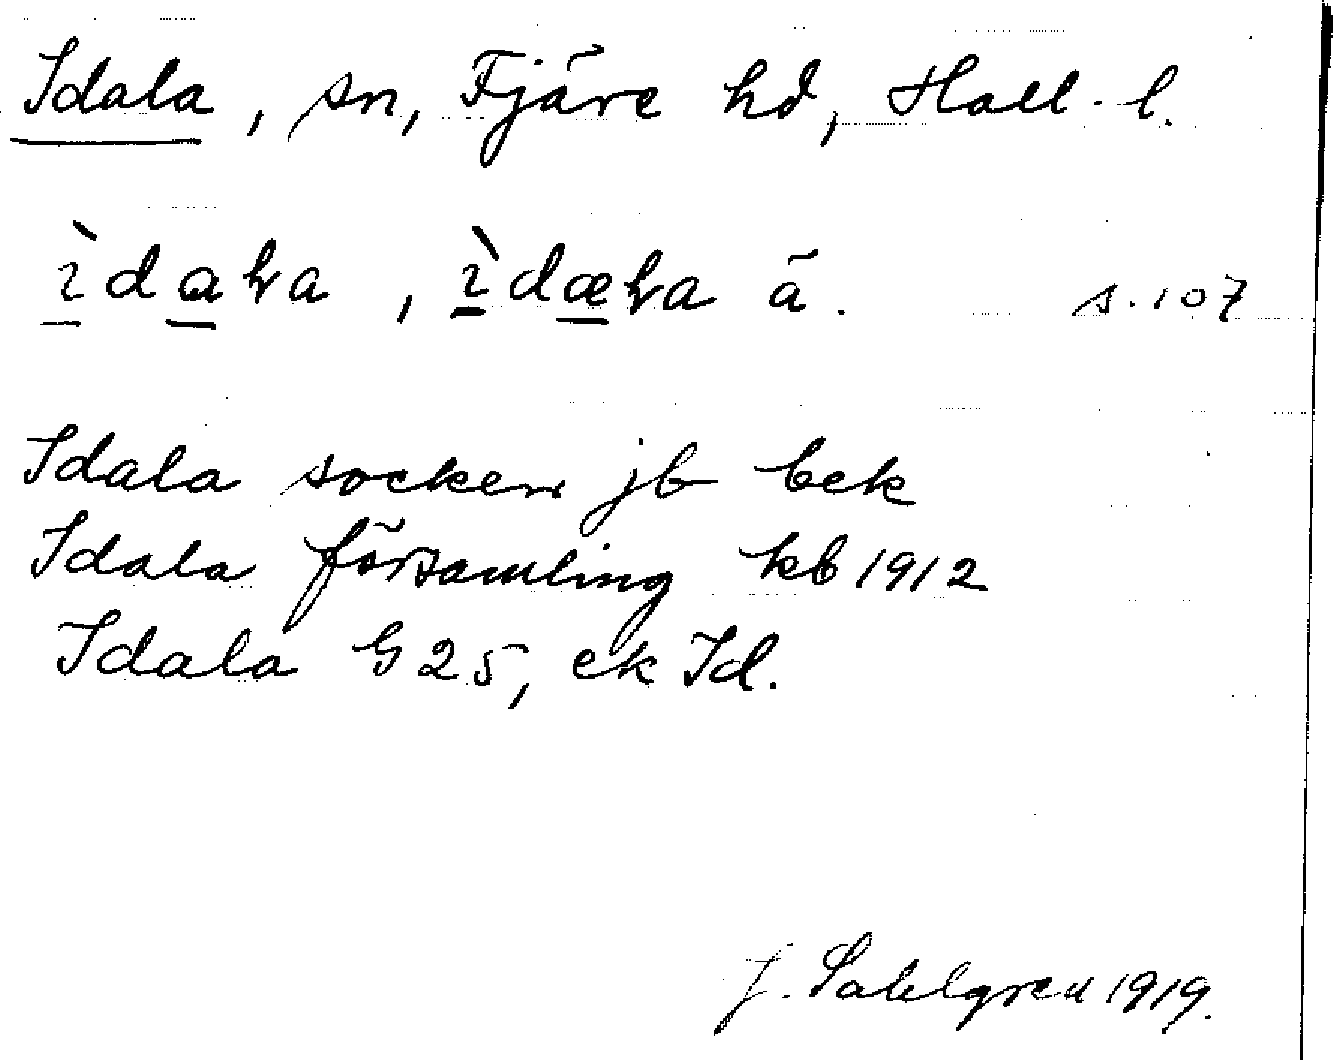 Idala, sn, Fjäre hd, Hall. l.
ìdaɫa, ìdæɫa ä. s. 107
Idala socken jb bek
Idala församling kb 1912
Idala G 25, ek Id.
J. Sahlgren 1919.